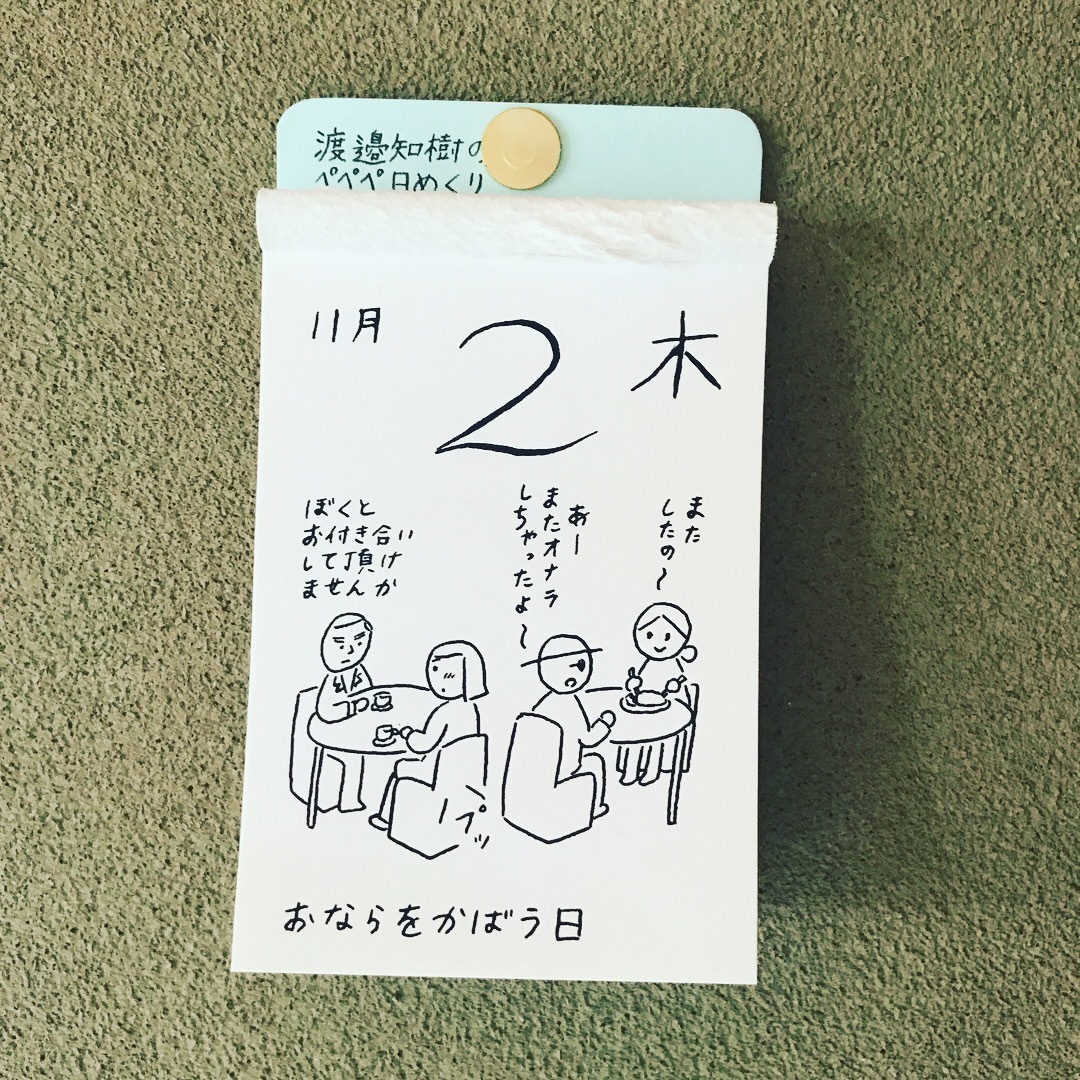 渡邉知樹の
ペペペ日めくり
11月
2
木
ぼくと
お付き合い
して頂け
ませんか
あー
またオナラ
しちゃったよ〜
また
したの〜
プッ
おならをかばう日